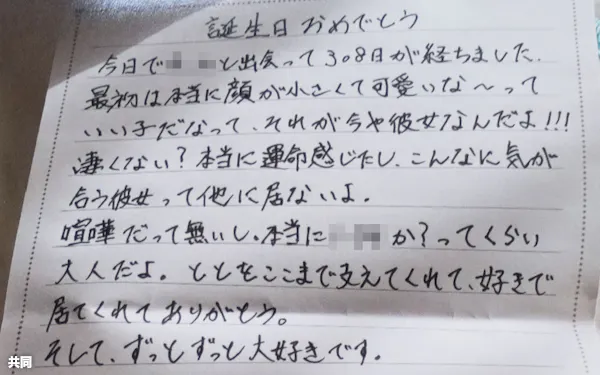 誕生日おめでとう
今日で と出会って308日が経ちました.
最初は本当に顔が小さくて可愛いな〜って
いい子だなって、それが今や彼女なんだよ!!!
凄くない?本当に運命感じたし、こんなに気が
合う彼女って他に居ないよ。
喧嘩だって無いし、本当に か?ってくらい
大人だよ。ととをここまで支えてくれて、好きで
居てくれてありがとう。
そして、ずっとずっと大好きです。
共同